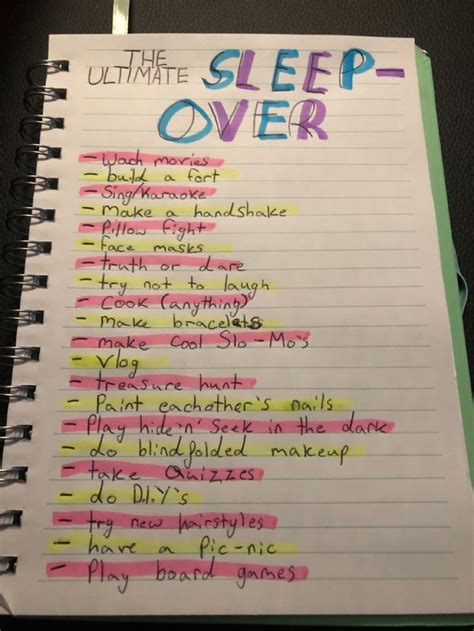 THE
ULTIMATE SLEEP-
OVER
- wach movies
- build a fort
- Sing/Karaoke
- make a handshake
- Pillow fight
- face masks
- truth or dare
- try not to laugh
- Cook (anything)
- make bracelets
- make cool Slo-Mo's
- Vlog
- treasure hunt
- Paint eachother's nails
- Play hide'n' Seek in the dark
- do blindfolded makeup
- take Quizzes
- do D.I.Y's
- try new hairstyles
- have a pic-nic
- Play board games